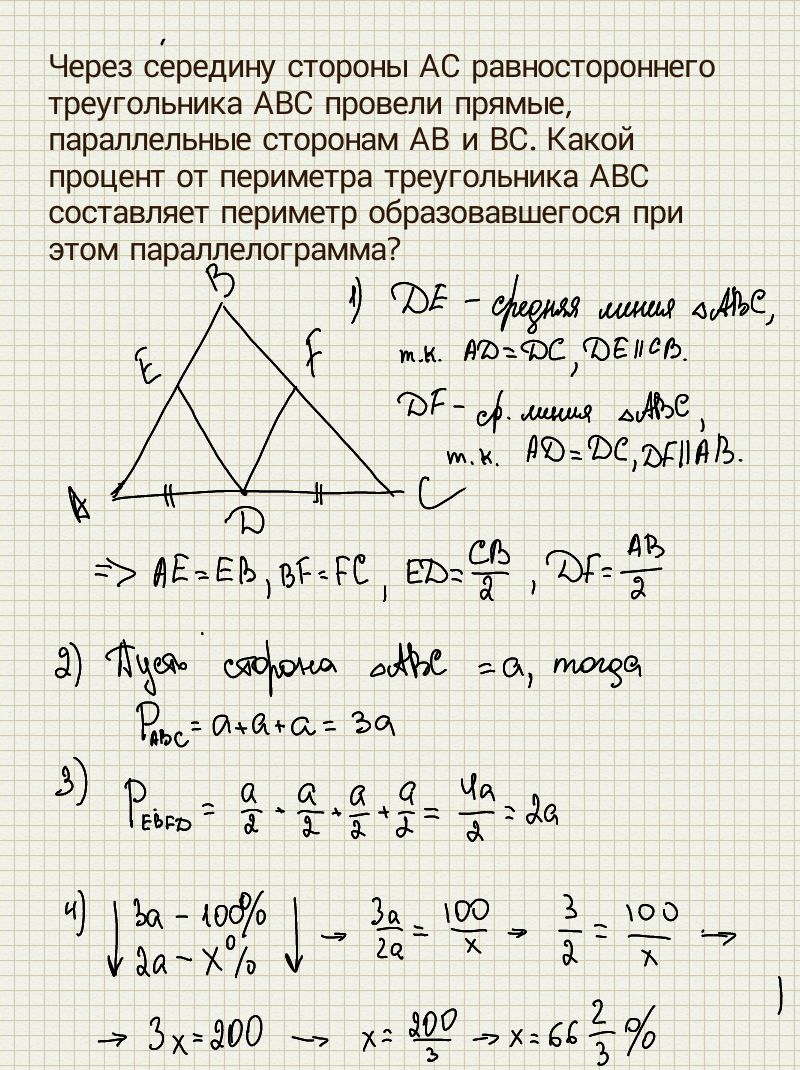 Через середину стороны AC равностороннего
треугольника ABC провели прямые,
параллельные сторонам AB и BC. Какой
процент от периметра треугольника ABC
составляет периметр образовавшегося при
этом параллелограмма?
B
E
F
A
D
C
1) DE – средняя линия △ABC,
т.к. AD=DC, DE∥CB.
DF – ср. линия △ABC,
т.к. AD=DC, DF∥AB.
=> AE=EB, BF=FC, ED=CB/2, DF=AB/2
2) Пусть сторона △ABC = a, тогда
P_ABC = a+a+a = 3a
3) P_EBFD = a/2 + a/2 + a/2 + a/2 = 4a/2 = 2a
4) ↓ 3a – 100% ↓ → 3a/2a = 100/x → 3/2 = 100/x →
2a – x%
→ 3x=200 → x=200/3 → x=66 2/3 %